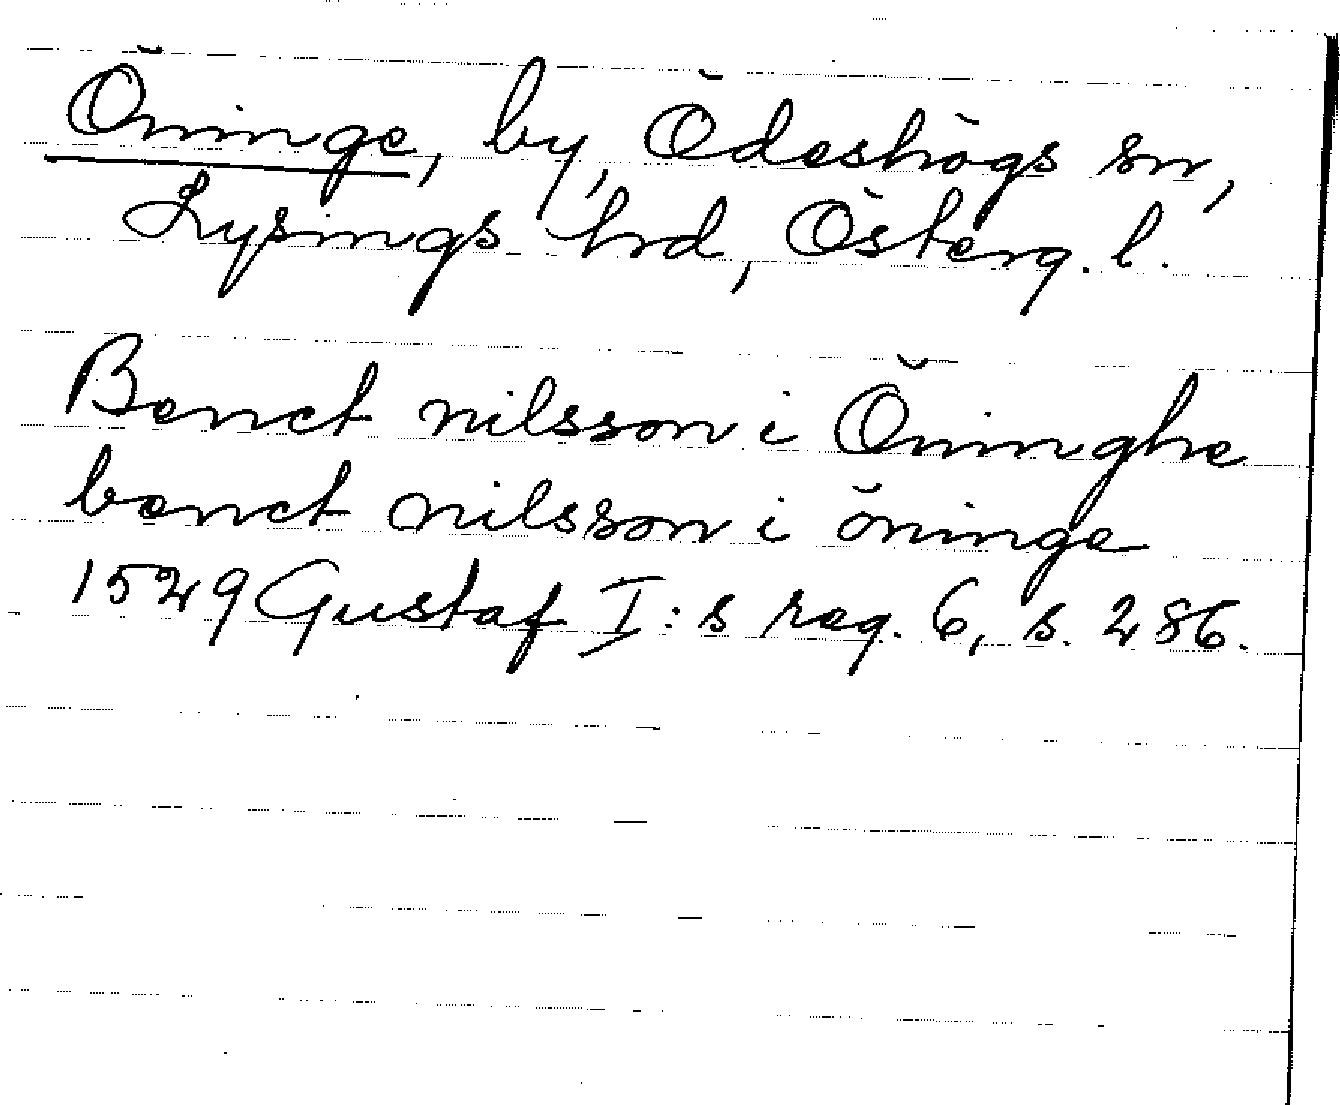 Öninge, by, Ödeshögs sn,
Lysings hrd, Österg. l.
Benct nilsson i Öninghe
benct nilsson i öninge
1529 Gustaf I:s reg. 6, s. 286.